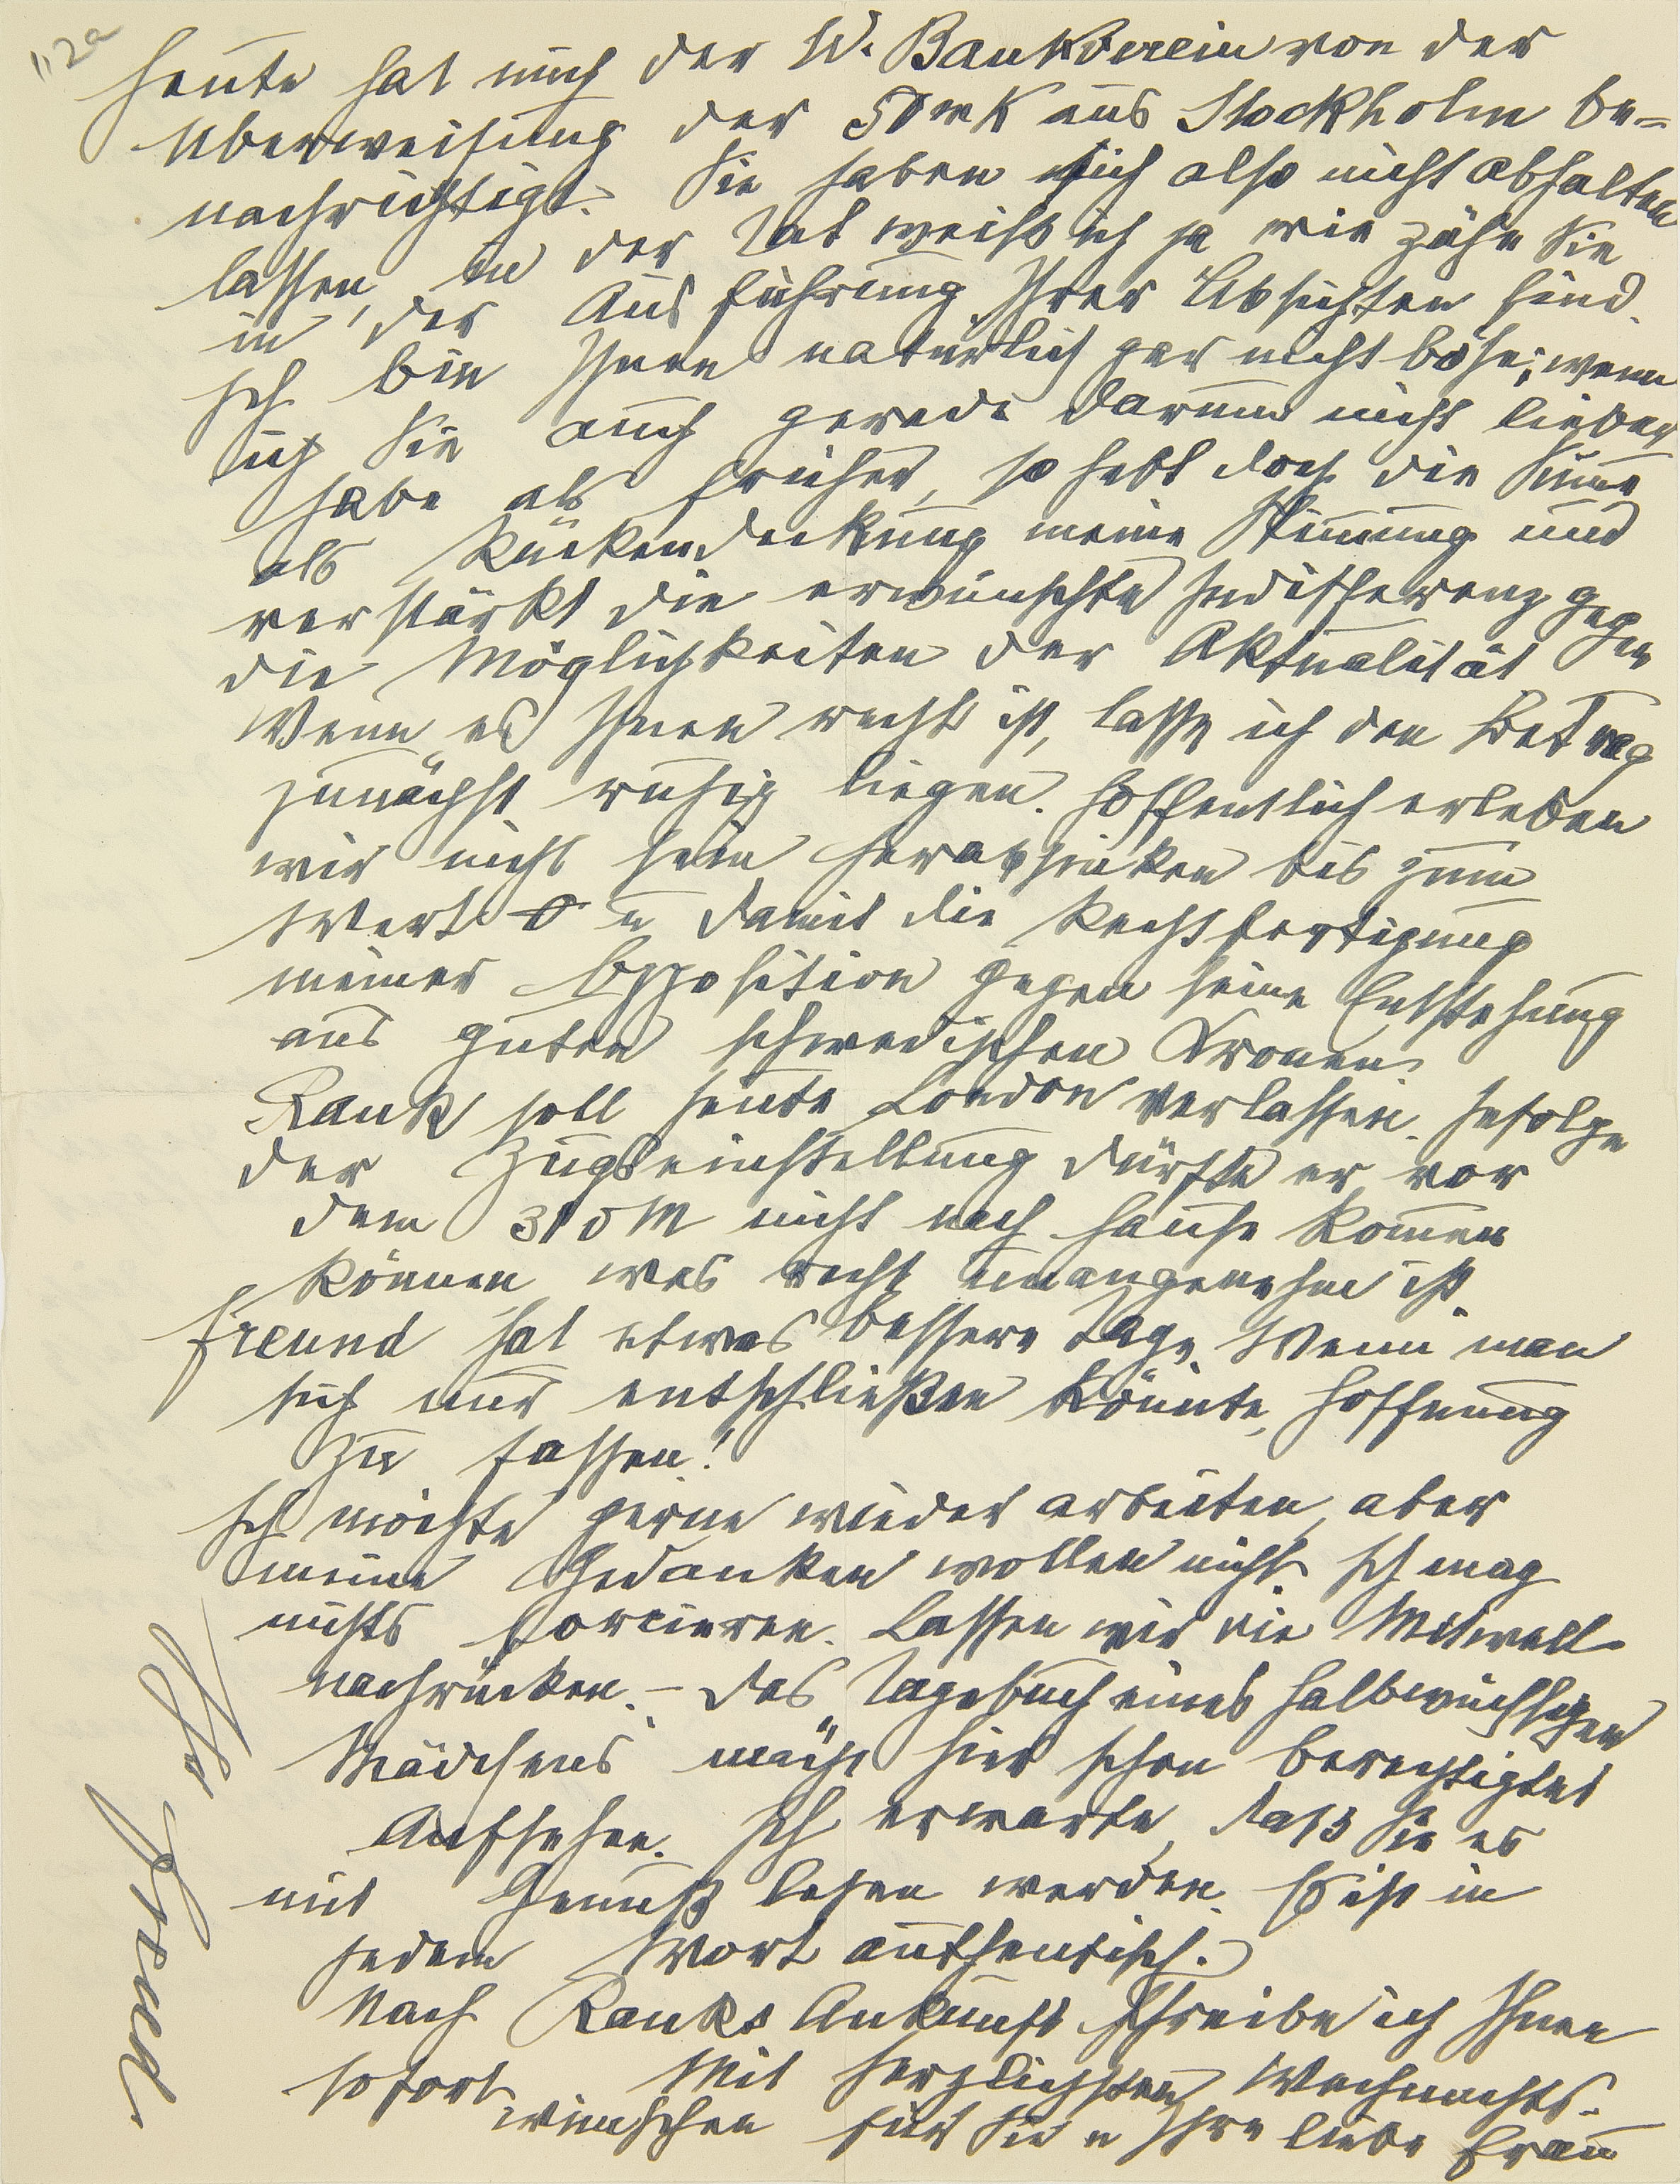 "2a
heute hat mich der W. Bankverein von der
Überweisung der 50 mK aus Stockholm be-
nachrichtigt. Sie haben sich also nicht abhalten
lassen, in der Tat weiß ich ja wie zähe Sie
in der Ausführung Ihrer Absichten sind.
Ich bin Ihnen natürlich gar nicht böse; wenn
ich Sie auch gerade darum nicht lieber
habe als früher, so hebt doch die Summe
als Rückendeckung meine Stimmung und
verstärkt die erwünschte Indifferenz gegen
die Möglichkeiten der Aktualität
Wenn es Ihnen recht ist, lasse ich den Betrag
zunächst ruhig liegen. Hoffentlich erleben
wir nicht sein Herabsinken bis zum
Wert 0 u damit die Rechtfertigung
meiner Opposition gegen seine Entstehung
aus guten schwedischen Kronen.
Rank soll heute London verlassen. Infolge
der Zugseinstellung dürfte er vor
dem 31 d M nicht nach Hause kommen
können was recht unangenehm ist.
Freund hat etwas bessere Tage. Wenn man
sich nur entschließen könnte, Hoffnung
zu fassen!
Ich möchte gerne wieder arbeiten, aber
meine Gedanken wollen nicht. Ich mag
nichts forcieren. Lassen wir die Mitwelt
nachrücken. – Das „Tagebuch eines halbwüchsigen
Mädchens" macht hier schon berechtigtes
Aufsehen. Ich erwarte, daß Sie es
mit Genuß lesen werden. Es ist in
jedem Wort authentisch.
Nach Ranks Ankunft schreibe ich Ihnen
sofort. Mit herzlichsten Weihnachts-
wünschen für Sie u Ihre liebe Frau
Ihr Freud